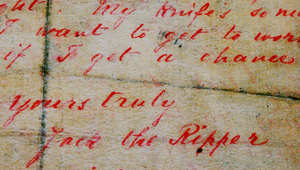 ght. My knife's so ni
I want to get to wor
if I get a chance
Yours truly
Jack the Ripper